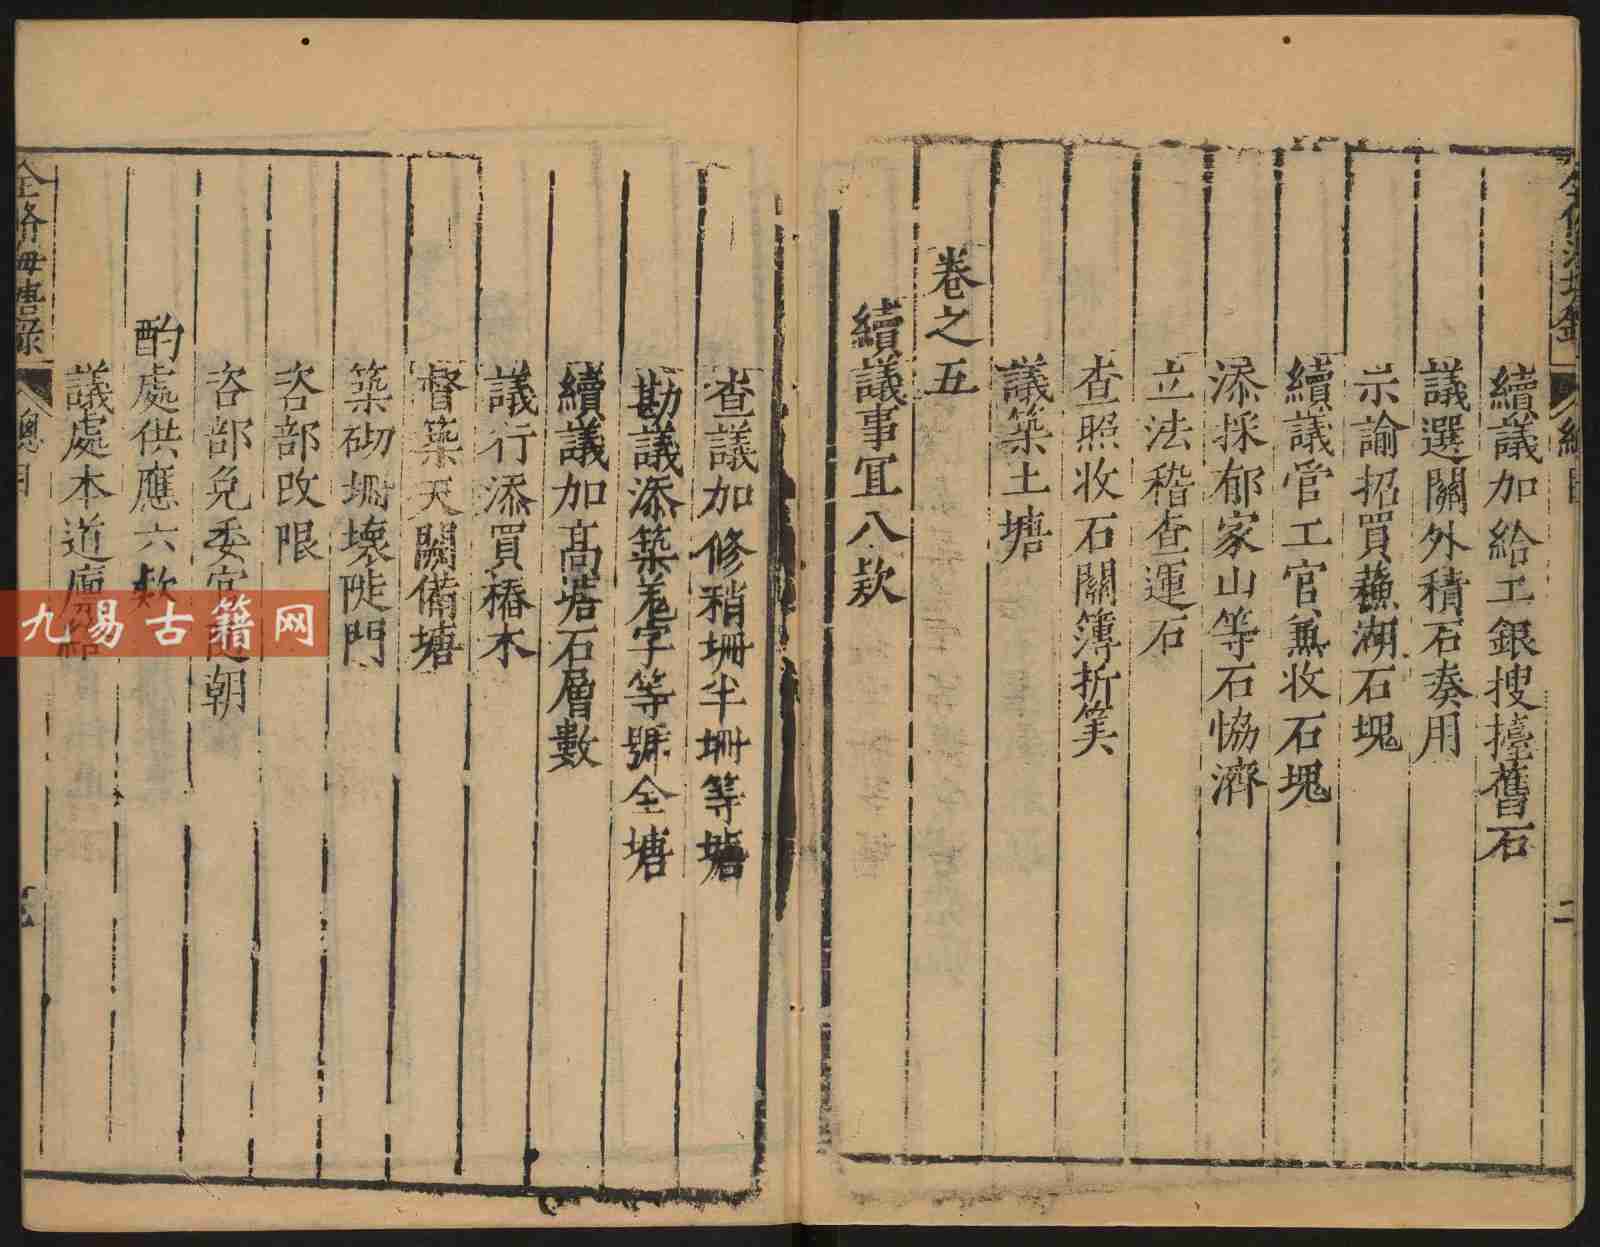 續議加給工銀搜擡舊石
議選關外積石奏用
示諭招買蘇湖石塊
續議管工官兼收石塊
添採郁家山等石恊濟
立法稽查運石
查照收石關簿折筭
議築土塘
卷之五
續議事宜八款
查議加修稍坍半坍等塘
勘議添築羌字等號全塘
續議加高塔石層數
議行添買樁木
督築天關備塘
築砌坍壞陡門
咨部改限
咨部免委官 朝
酌處供應六款
議處本道 
全修海塘錄
總目
九易古籍网